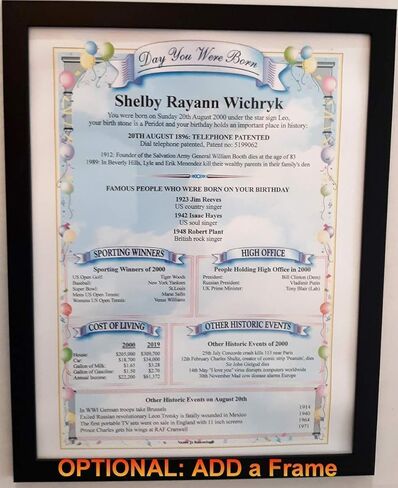 Day You Were Born
Shelby Rayann Wichryk
You were born on Sunday 20th August 2000 under the star sign Leo,
your birth stone is a Peridot and your birthday holds an important place in history:
20TH AUGUST 1896: TELEPHONE PATENTED
Dial telephone patented, Patent no: 5199062
1912: Founder of the Salvation Army General William Booth dies at the age of 83
1989: In Beverly Hills, Lyle and Erik Menendez kill their wealthy parents in their family's den
FAMOUS PEOPLE WHO WERE BORN ON YOUR BIRTHDAY
1923 Jim Reeves
US country singer
1942 Isaac Hayes
US soul singer
1948 Robert Plant
British rock singer
SPORTING WINNERS
Sporting Winners of 2000
US Open Golf: Tiger Woods
Baseball: New York Yankees
Super Bowl: St.Louis
Mens US Open Tennis: Marat Safin
Womens US Open Tennis: Venus Williams
HIGH OFFICE
People Holding High Office in 2000
President: Bill Clinton (Dem)
Russian President: Vladimir Putin
UK Prime Minister: Tony Blair (Lab)
COST OF LIVING
2000 2019
House: $205,000 $309,700
Car: $18,700 $34,000
Gallon of Milk: $1.65 $3.28
Gallon of Gasoline: $1.50 $2.70
Annual Income: $22,200 $61,372
OTHER HISTORIC EVENTS
Other Historic Events of 2000
25th July Concorde crash kills 113 near Paris
12th February Charles Shultz, creator of comic strip 'Peanuts', dies
Sir John Gielgud dies
14th May "I love you" virus disrupts computers worldwide
30th November Mad cow disease alarms Europe
Other Historic Events on August 20th
In WWI German troops take Brussels 1914
Exiled Russian revolutionary Leon Trotsky is fatally wounded in Mexico 1940
The first portable TV sets went on sale in England with 11 inch screens 1964
Prince Charles gets his wings at RAF Cranwell 1971
OPTIONAL: ADD a Frame